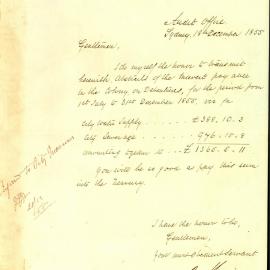 Audit Office
Sydney, 18th December 1855
Gentlemen,
I do myself the honor to transmit
herewith Abstracts of the Amount pay able
in the Colony on Debentures, for the period from
1st July to 31st December 1855, viz
City Water Supply . . . £388. 10. 3
City Sewerage . . . 976. 10. 8
amounting together to . . £1365. 0. 11
You will be so good as pay this sum
into the Treasury.
I have the honor to be,
Gentlemen,
Your most obedient servant